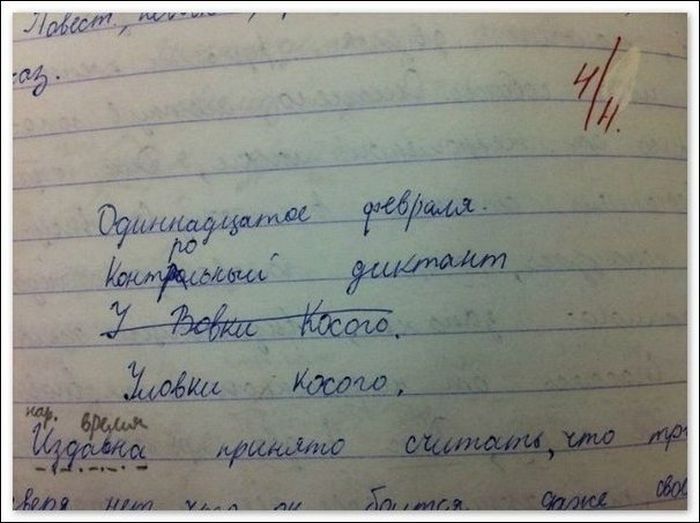 Повест.,
каз.
4/4.
Одиннадцатое февраля.
Контрольный диктант
У Вовки Косого.
Уловки косого.
нар. время
Издавна принято считать, что тр
зверя нет, что он боится даже сво